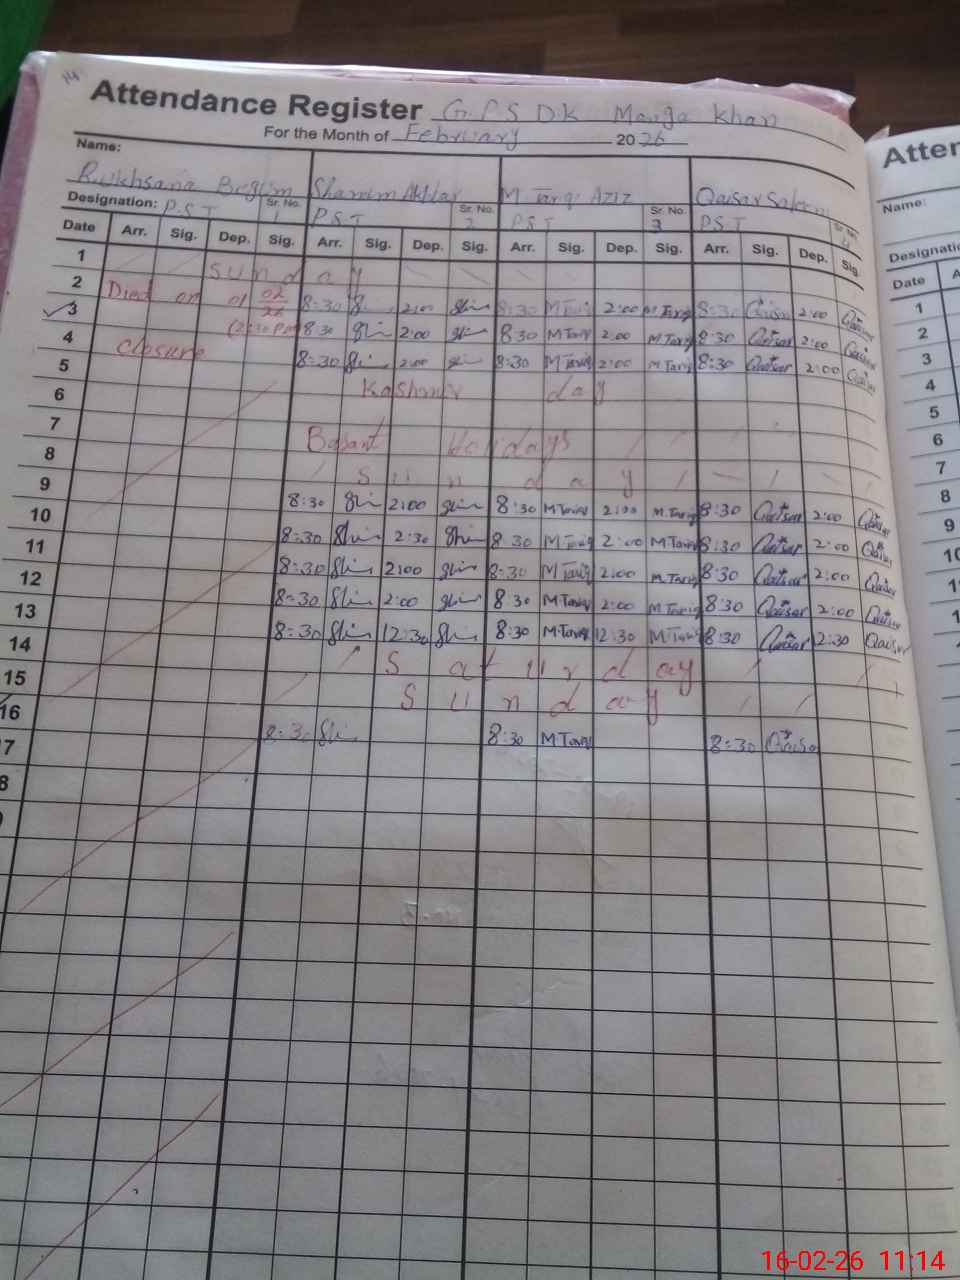 14
Attendance Register G.P.S D.K Manga Khan
For the Month of February 2026
Name:
Rukhsana Begum Shamim Akhtar M Tariq Aziz Qaisar Saleem
Designation: P.S.T Sr. No. 1 P.S.T Sr. No. 2 P.S.T Sr. No. 3 P.S.T Sr. No. 4
Date Arr. Sig. Dep. Sig. Arr. Sig. Dep. Sig. Arr. Sig. Dep. Sig. Arr. Sig. Dep. Sig.
1 Sunday
2 Died on 01 02/26 8:30 2:00 8:30 M Tariq 2:00 M Tariq 8:30 Qaisar 2:00 Qaisar
3 (2:30 PM) 8:30 2:00 8:30 M Tariq 2:00 M.Tariq 8:30 Qaisar 2:00 Qaisar
4 closure 8:30 2:00 8:30 M Tariq 2:00 M Tariq 8:30 Qaisar 2:00 Qaisar
5 Kashmir day
6
7 Basant Holidays
8 Sunday
9 8:30 2:00 8:30 M Tariq 2:00 M.Tariq 8:30 Qaisar 2:00 Qaisar
10 8:30 2:30 8:30 M Tariq 2:00 M Tariq 8:30 Qaisar 2:00 Qaisar
11 8:30 2:00 8:30 M Tariq 2:00 M.Tariq 8:30 Qaisar 2:00 Qaisar
12 8:30 2:00 8:30 M Tariq 2:00 M Tariq 8:30 Qaisar 2:00 Qaisar
13 8:30 12:30 8:30 M.Tariq 12:30 M Tariq 8:30 Qaisar 2:30 Qaisar
14 Saturday
15 Sunday
16 8:30 8:30 M Tariq 8:30 Qaisa
7
8
Atten
Name:
Designatio
Date A
1
2
3
4
5
6
7
8
9
10
16-02-26 11:14